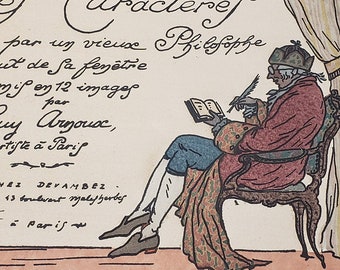 Caractères
par un vieux Philosophe
ut de sa fenêtre
mis en 12 images
par
uy Arnoux,
rtiste à Paris
HEZ DEVAMBEZ
13 boulevart Malesherbes
à Paris